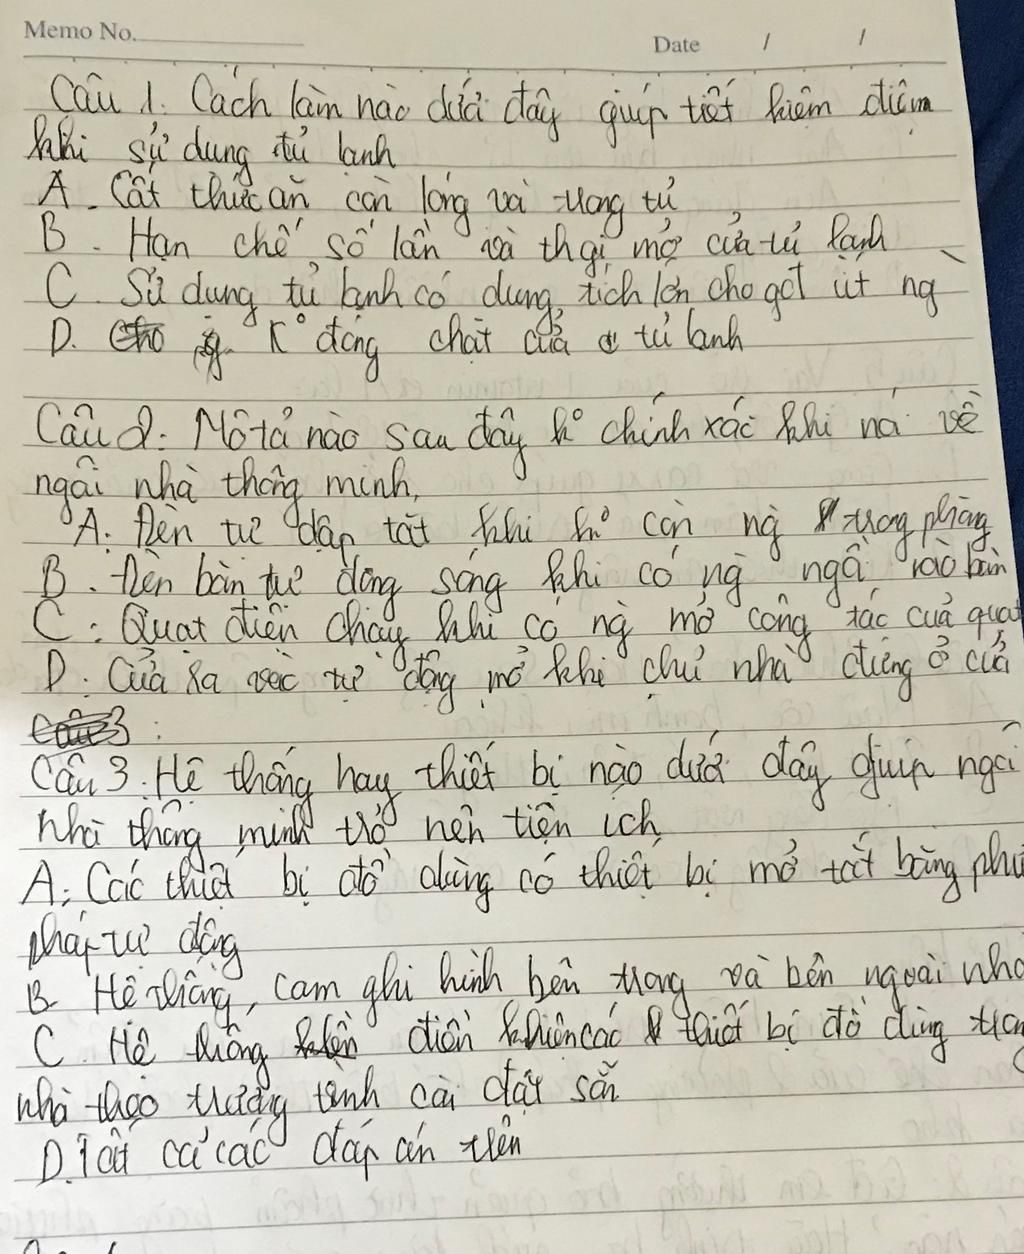 Memo No.
Date / /
Câu 1. Cách làm nào dưới đây giúp tiết kiệm điện
khi sử dụng tủ lạnh
A. Cất thức ăn còn nóng vào trong tủ
B. Hạn chế số lần và thgi mở cửa tủ lạnh
C. Sử dụng tủ lạnh có dung tích lớn cho gđ ít ng
D. K° đóng chặt cửa tủ lạnh
Câu 2: Mô tả nào sau đây k° chính xác khi nói về
ngôi nhà thông minh.
A: Đèn tự tắt khi k° còn ng trong phòng
B. Đèn bàn tự động sáng khi có ng ngồi vào bàn
C: Quạt điện chạy khi có ng mở công tắc của quạt
D: Cửa ra vào tự động mở khi chủ nhà đứng ở cửa
Câu 3. Hệ thống hay thiết bị nào dưới đây giúp ngôi
nhà thông minh trở nên tiện ích
A: Các thiết bị đồ dùng có thiết bị mở tắt bằng
pháp tự động
B. Hệ thống, cam ghi hình bên trong và bên ngoài nhà
C Hệ thống điều khiển các thiết bị đồ dùng trong
nhà theo trương trình cài đặt sẵn
D. Tất cả các đáp án trên